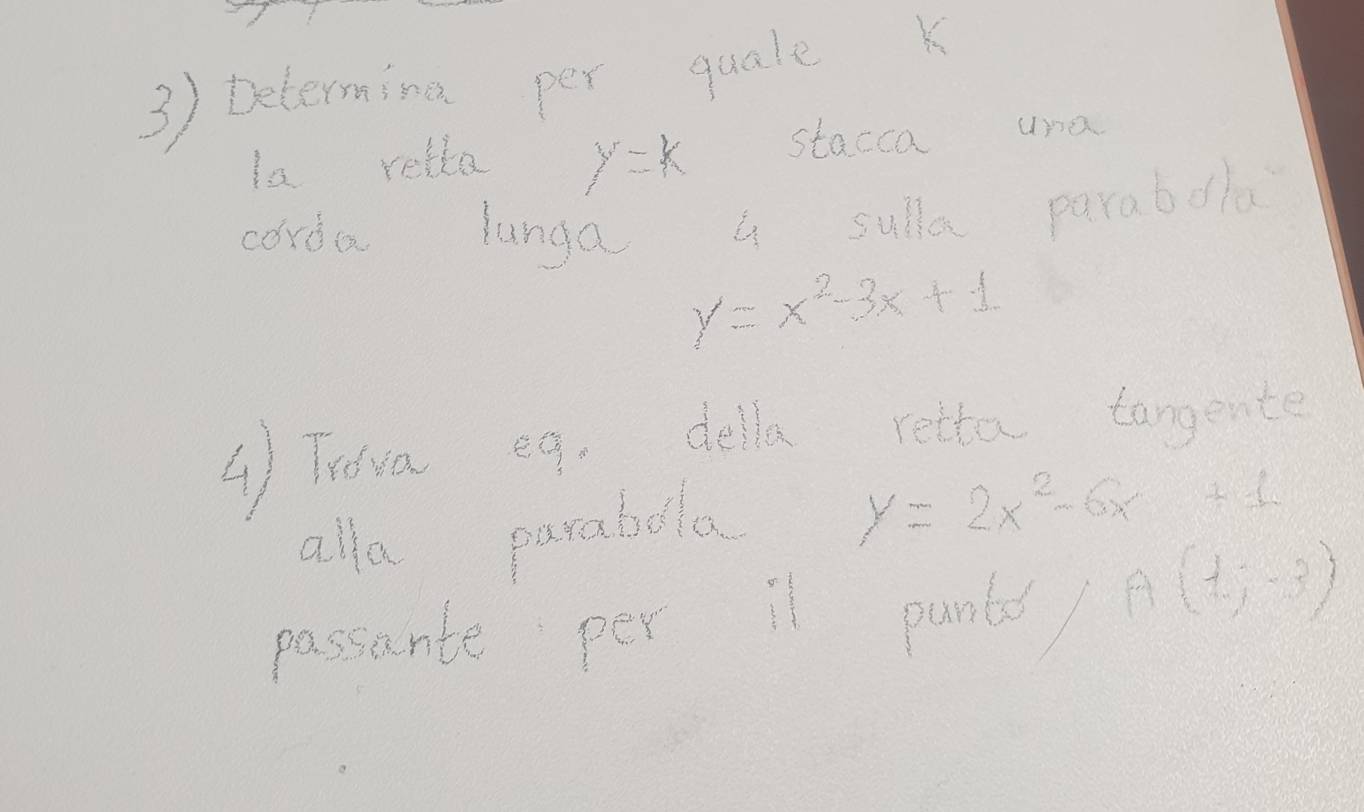 3) Determina per quale K
la retta y=k stacca una
corda lunga 4 sulla parabola
y = x²-3x + 1
4) Trova eq. della retta tangente
alla parabola y = 2x²-6x + 1
passante per il punto, A (1; -3)